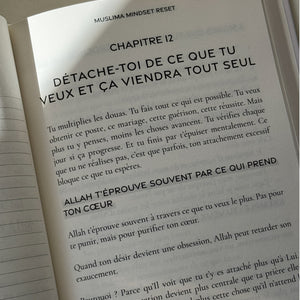 MUSLIMA MINDSET RESET
CHAPITRE 12
DÉTACHE-TOI DE CE QUE TU
VEUX ET ÇA VIENDRA TOUT SEUL
Tu multiplies les douas. Tu fais tout ce qui est possible. Tu veux
obtenir ce poste, ce mariage, cette guérison, cette réussite. Mais
plus tu y penses, moins les choses avancent. Tu vérifies chaque
jour si ça progresse. Et tu finis par t'épuiser mentalement. Ce
que tu ne réalises pas, c'est que parfois, ton attachement excessif
bloque ce que tu espères.
ALLAH T'ÉPROUVE SOUVENT PAR CE QUI PREND
TON CŒUR
Allah t'éprouve souvent à travers ce que tu veux le plus. Pas pour
te punir, mais pour purifier ton cœur.
Quand ton désir devient une obsession, Allah peut retarder son
exaucement.
Pourquoi ? Parce qu'Il voit que tu t'y es attaché plus qu'à Lui.
devient plus centrale que ta prière elle